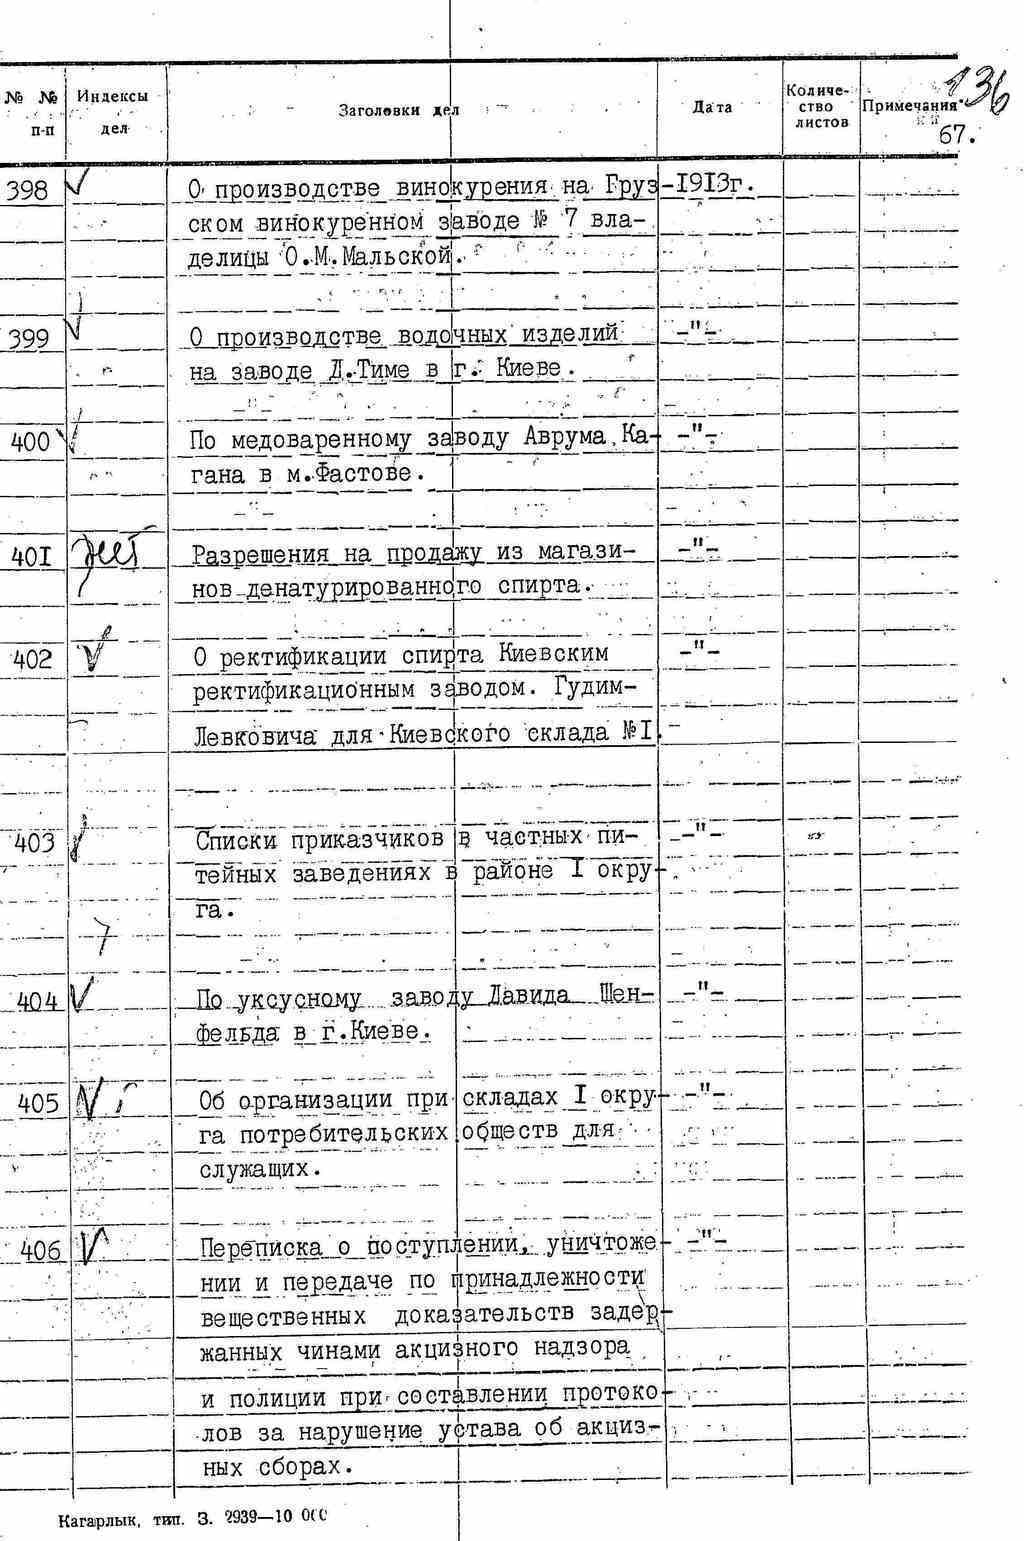 136
67.
№ № п-п Индексы дел Заголовки дел Дата Количе- ство листов Примечания
398 О производстве винокурения на Груз- 1913г.
ском винокуренном заводе № 7 вла-
делицы О.М.Мальской.
399 О производстве водочных изделий -"-
на заводе Д.Тиме в г. Киеве.
400 По медоваренному заводу Аврума Ка- -"-
гана в м.Фастове.
401 Разрешения на продажу из магази- -"-
нов денатурированного спирта.
402 О ректификации спирта Киевским -"-
ректификационным заводом. Гудим-
Левковича для Киевского склада №I.
403 Списки приказчиков в частных пи- -"-
тейных заведениях в районе I окру-
га.
404 По уксусному заводу Давида Шен- -"-
фельда в г.Киеве.
405 Об организации при складах I окру- -"-
га потребительских обществ для
служащих.
406 Переписка о поступлении, уничтоже- -"-
нии и передаче по принадлежности
вещественных доказательств задер-
жанных чинами акцизного надзора
и полиции при составлении протоко-
лов за нарушение устава об акциз-
ных сборах.
Кагарлык, тип. З. 2939—10 000